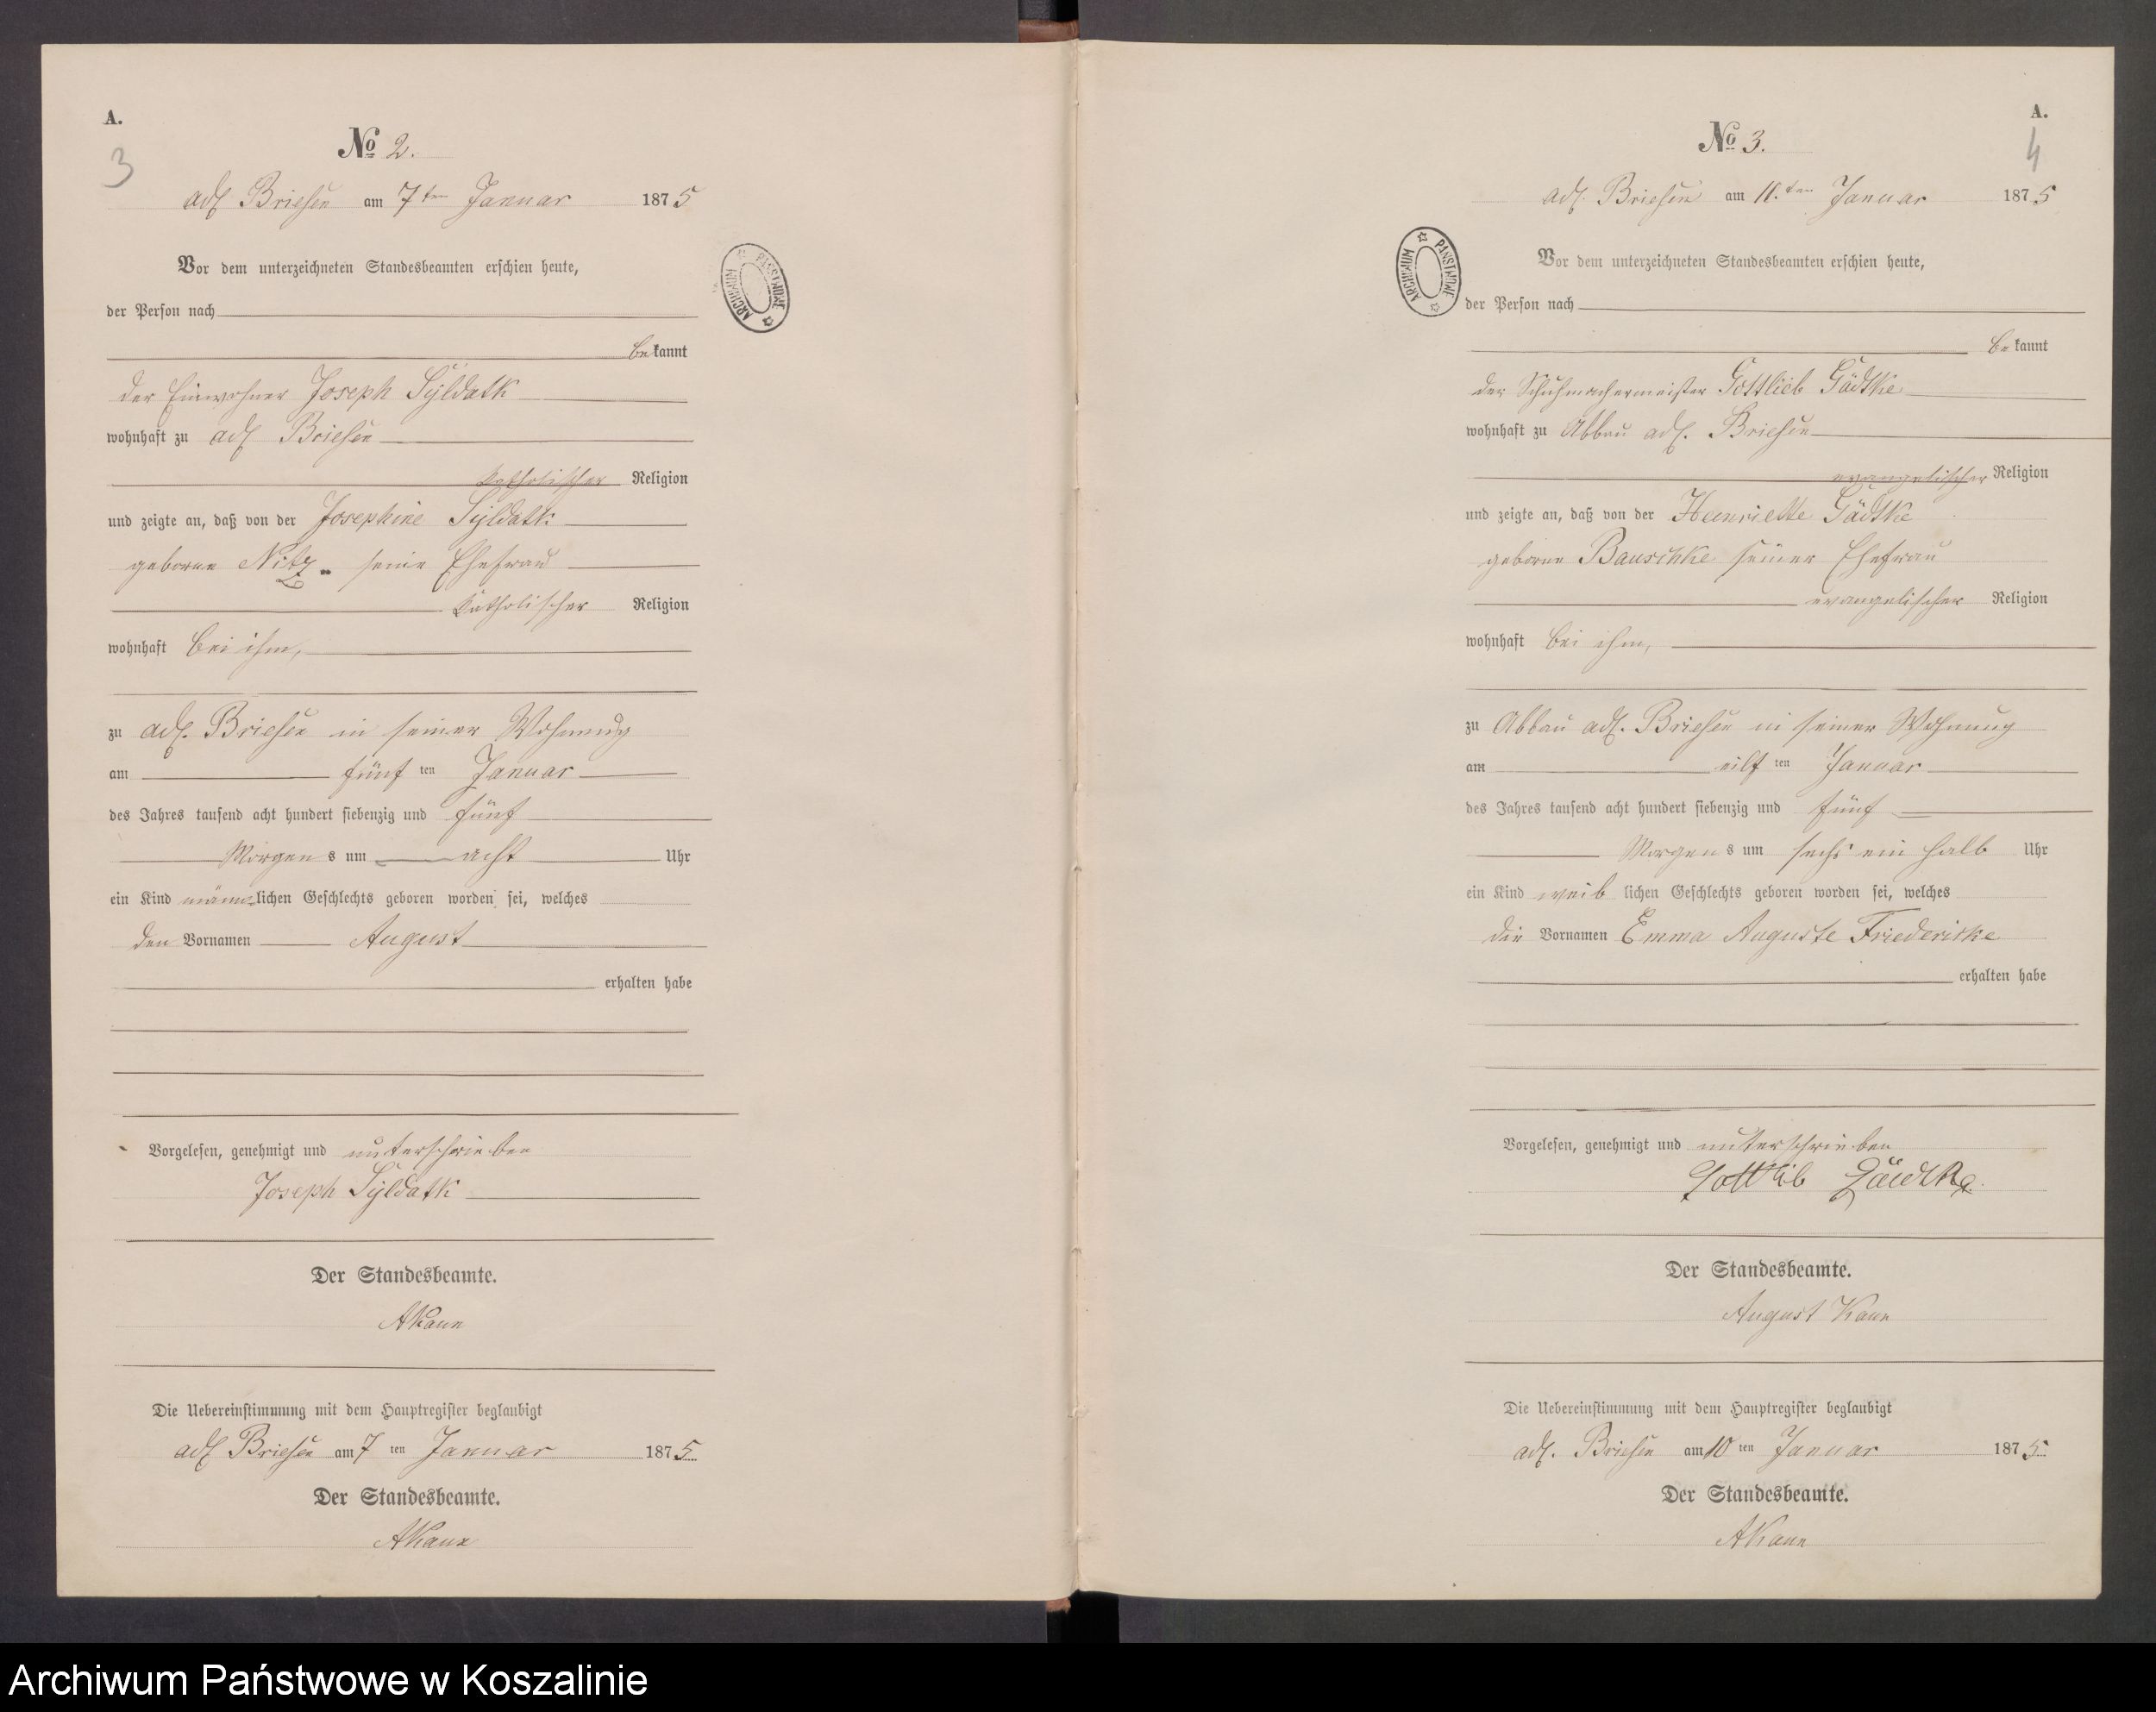 A.
3
No 2.
adl Briesen am 7ten Januar 1875
Vor dem unterzeichneten Standesbeamten erschien heute,
der Person nach
bekannt
der Einwohner Joseph Syldatk
wohnhaft zu adl Briesen
katholischer Religion
und zeigte an, daß von der Josephine Syldatk
geborne Nitz seine Ehefrau
katholischer Religion
wohnhaft bei ihm,
zu adl. Briesen in seiner Wohnung
am fünf ten Januar
des Jahres tausend acht hundert siebenzig und fünf
Morgens um acht Uhr
ein Kind männlichen Geschlechts geboren worden sei, welches
den Vornamen August
erhalten habe
Vorgelesen, genehmigt und unterschrieben
Joseph Syldatk
Der Standesbeamte.
AKaun
Die Uebereinstimmung mit dem Hauptregister beglaubigt
adl Briesen am 7 ten Januar 1875
Der Standesbeamte.
AKaun
ARCHIWUM PAŃSTWOWE
A.
4
No 3.
adl. Briesen am 11.ten Januar 1875
Vor dem unterzeichneten Standesbeamten erschien heute,
der Person nach
bekannt
der Schuhmachermeister Gottlieb Gädtke
wohnhaft zu Abbau adl. Briesen
evangelischer Religion
und zeigte an, daß von der Henriette Gädtke
geborne Bauschke seiner Ehefrau
evangelischer Religion
wohnhaft bei ihm,
zu Abbau adl. Briesen in seiner Wohnung
am eilf ten Januar
des Jahres tausend acht hundert siebenzig und fünf
Morgens um sechs ein halb Uhr
ein Kind weiblichen Geschlechts geboren worden sei, welches
die Vornamen Emma Auguste Friedericke
erhalten habe
Vorgelesen, genehmigt und unterschrieben
Gottlib Gäedtke
Der Standesbeamte.
August Kaun
Die Uebereinstimmung mit dem Hauptregister beglaubigt
adl. Briesen am 10 ten Januar 1875
Der Standesbeamte.
AKaun
ARCHIWUM PAŃSTWOWE
Archiwum Państwowe w Koszalinie